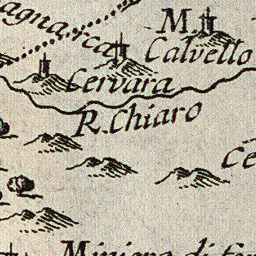 agnarca
M.
Calvello
Cervara
R. Chiaro
Ce
Miniera di fer